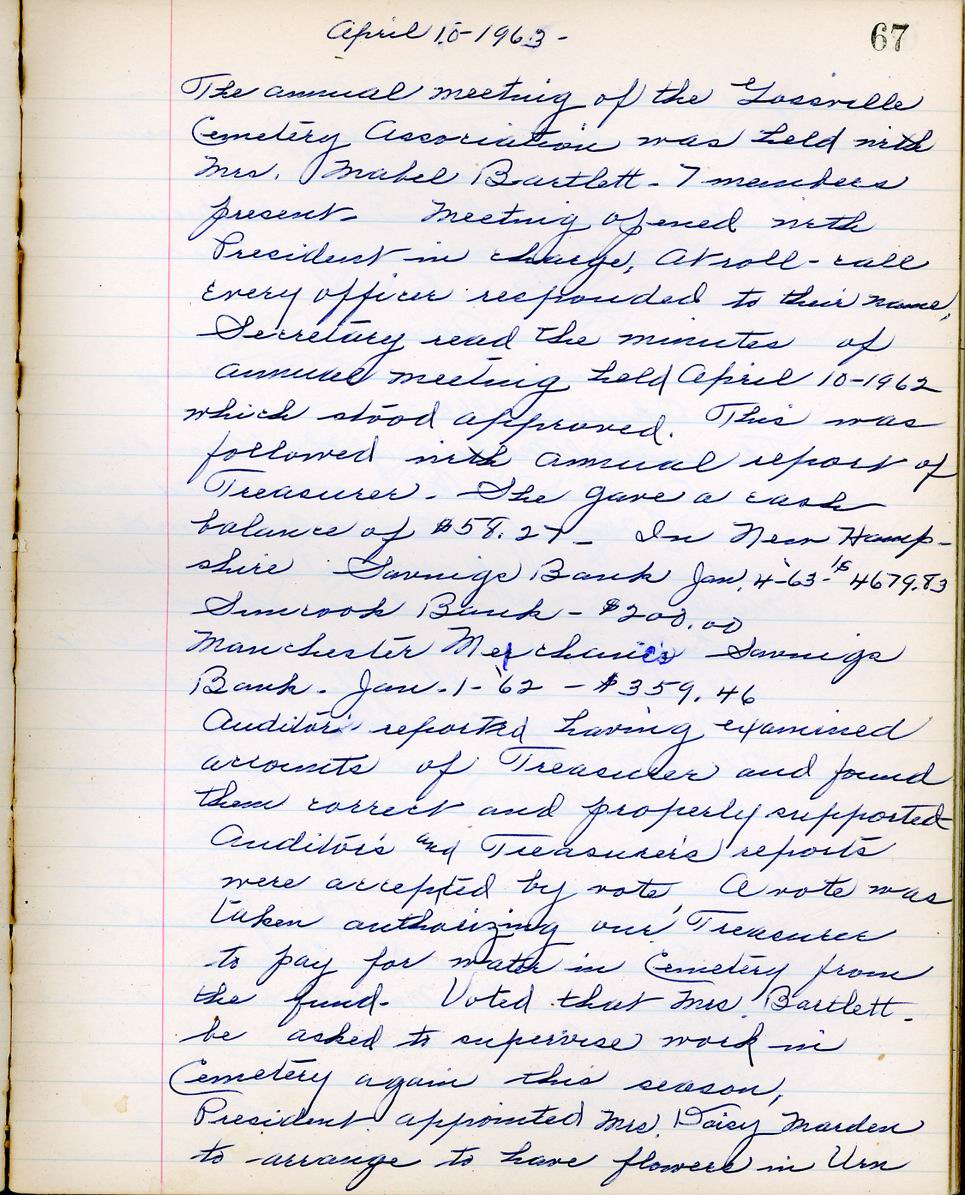 April 10-1963-
67
The annual meeting of the Gossville
Cemetery Association was held with
Mrs. Mabel Bartlett - 7 members
present - Meeting opened with
President in charge, At roll-call
every officer responded to their name,
Secretary read the minutes of
annual meeting held April 10-1962
which stood approved. This was
followed with annual report of
Treasurer - She gave a cash
balance of $58.27 - In New Hamp-
shire Savings Bank Jan. 4-63-$4679.83
Suncook Bank - $200.00
Manchester Mechanics Savings
Bank - Jan-1-'62 - $359.46
Auditors reported having examined
accounts of Treasurer and found
them correct and properly supported
Auditor's and Treasurer's reports
were accepted by vote, A vote was
taken authorizing our Treasurer
to pay for water in Cemetery from
the fund - Voted that Mrs. Bartlett -
be asked to supervise work in
Cemetery again this season,
President appointed Mrs. Daisy Marden
to arrange to have flowers in Urn